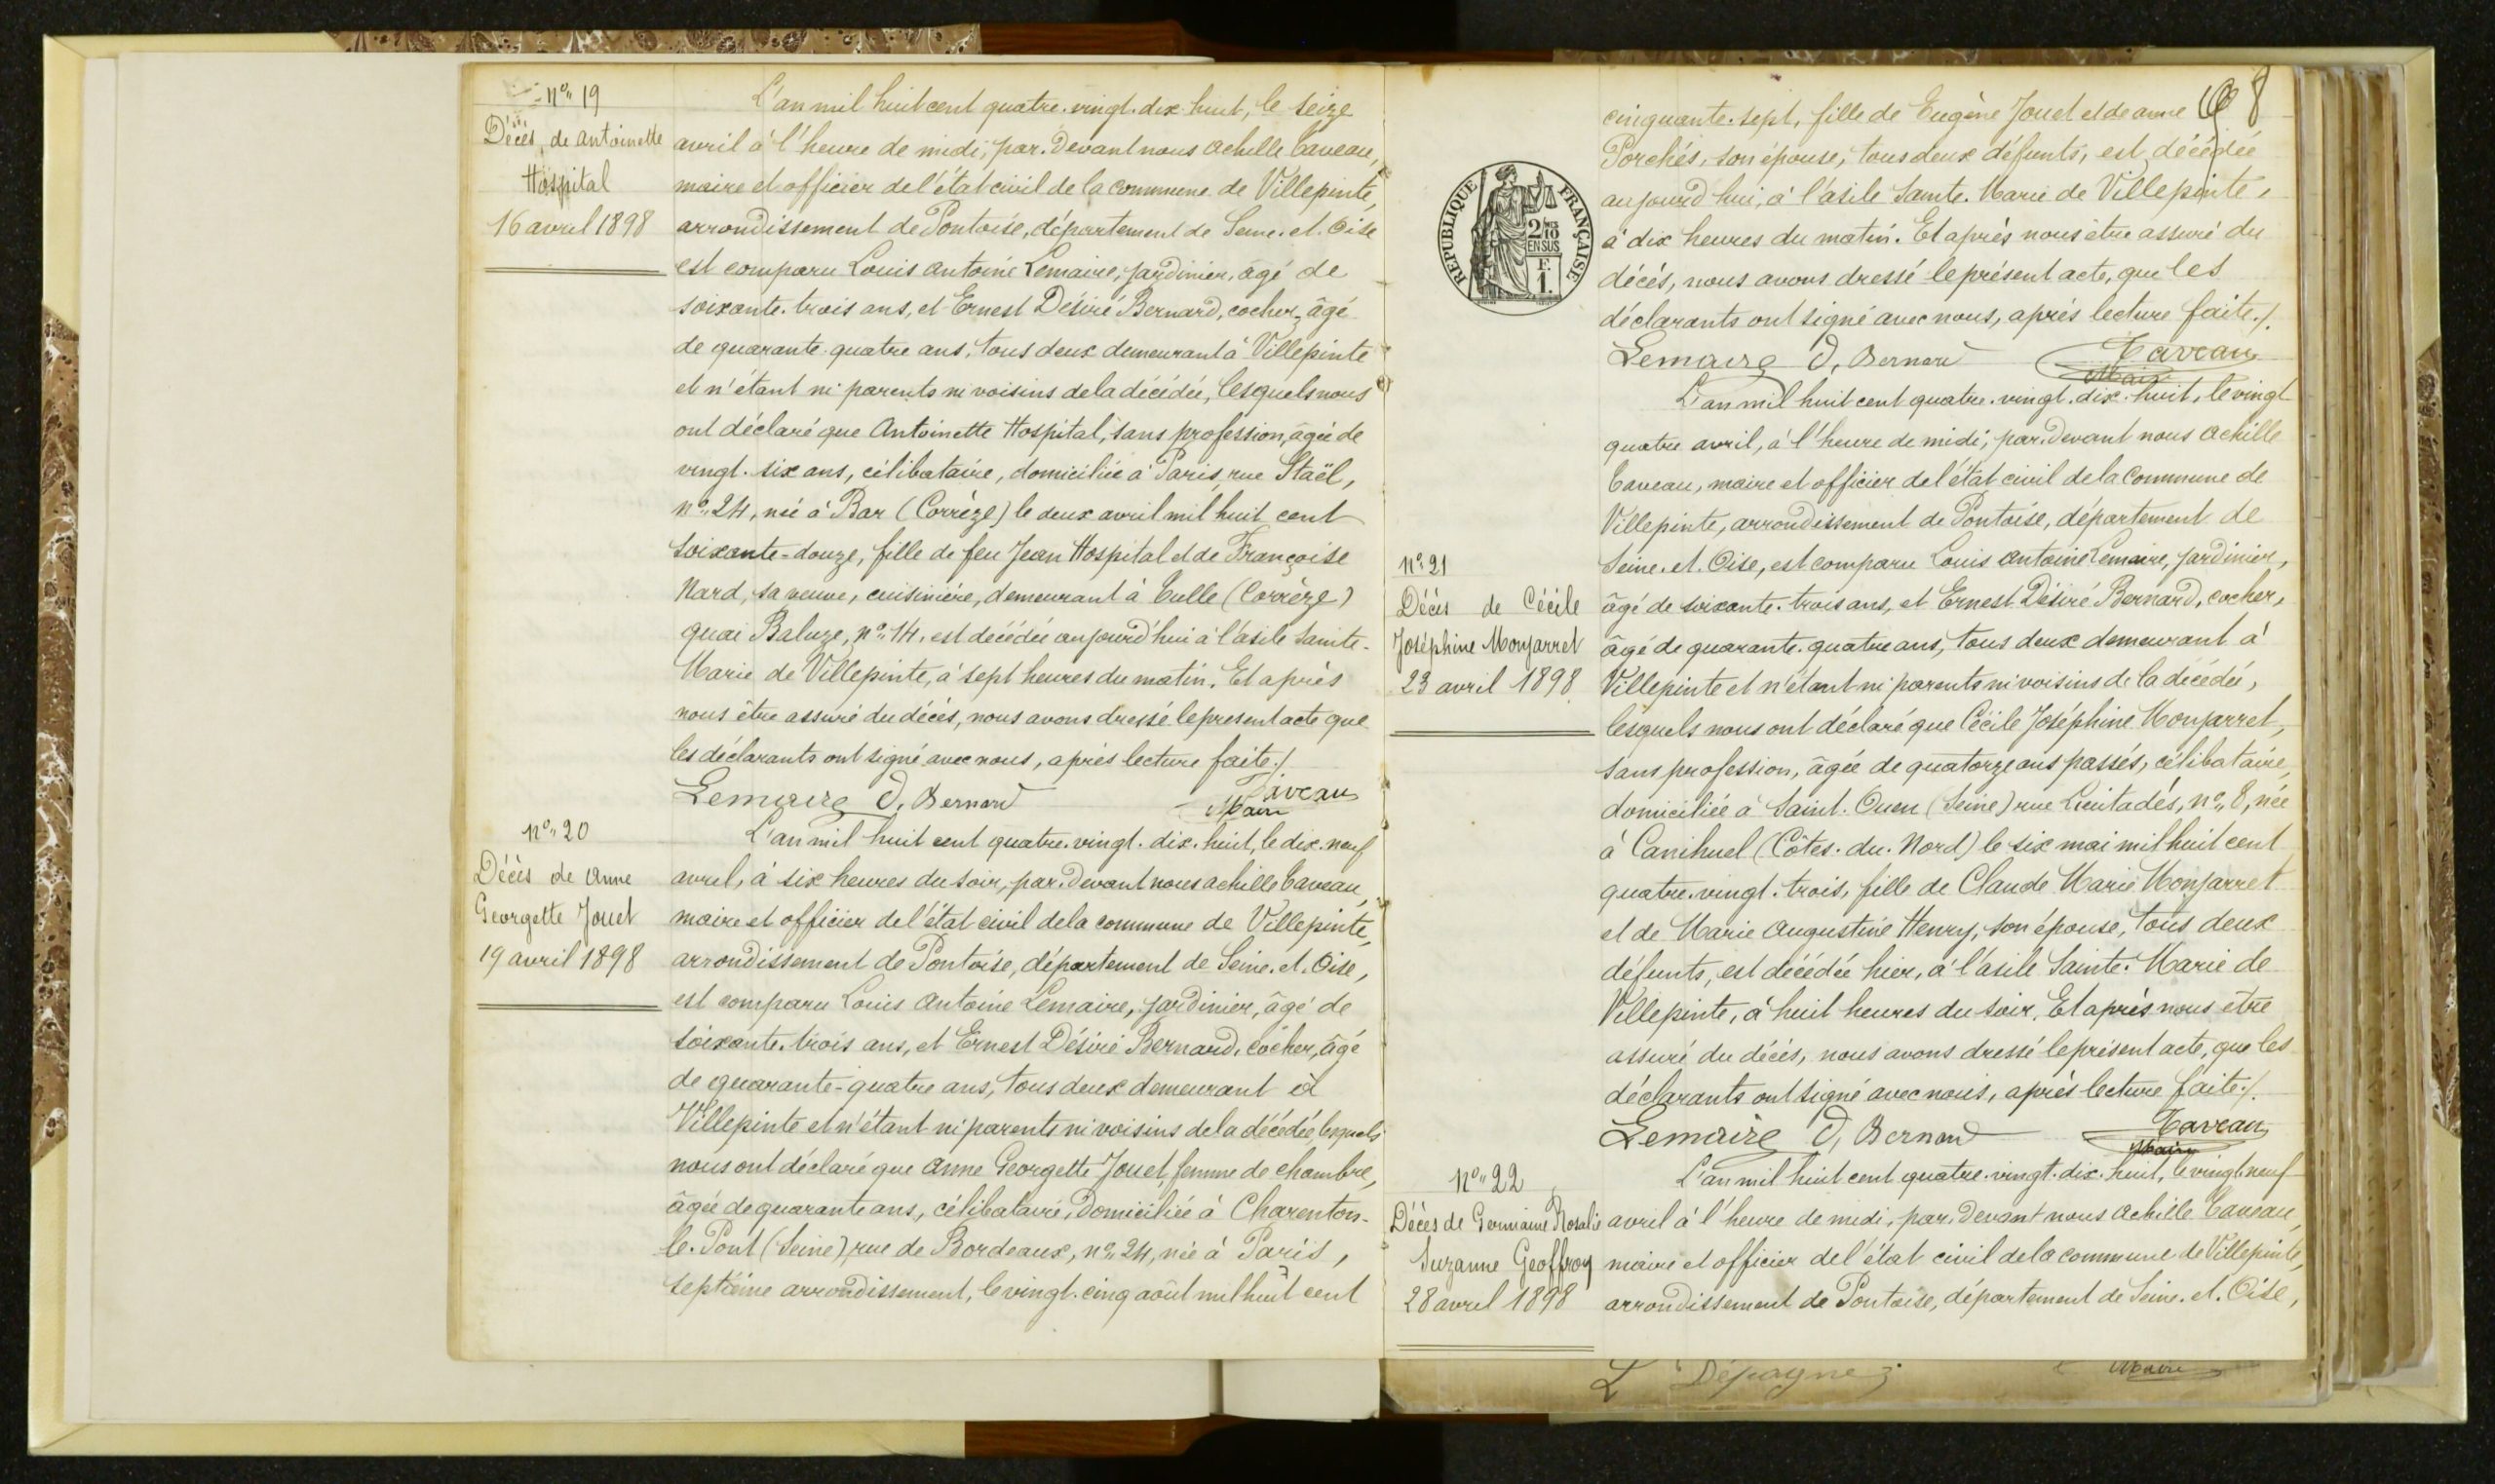 nº 19
Décès de Antoinette
Hospital
16 avril 1898
L'an mil huit cent quatre-vingt-dix-huit, le seize
avril à l'heure de midi, par-devant nous Achille Taveau,
maire et officier de l'état civil de la commune de Villepinte,
arrondissement de Pontoise, département de Seine-et-Oise
est comparu Louis Antoine Lemaire, jardinier, âgé de
soixante-trois ans, et Ernest Désiré Bernard, cocher, âgé
de quarante-quatre ans, tous deux demeurant à Villepinte
et n'étant ni parents ni voisins de la décédée, lesquels nous
ont déclaré que Antoinette Hospital, sans profession, âgée de
vingt-six ans, célibataire, domiciliée à Paris, rue Staël,
nº 24, née à Bar (Corrèze) le deux avril mil huit cent
soixante-douze, fille de feu Jean Hospital et de Françoise
Nard, sa veuve, cuisinière, demeurant à Tulle (Corrèze)
quai Baluze, nº 14, est décédée aujourd'hui à l'asile Sainte-
Marie de Villepinte, à sept heures du matin. Et après
nous être assuré du décès, nous avons dressé le present acte que
les déclarants ont signé avec nous, après lecture faite./.
Lemaire D. Bernard Taveau
Maire
nº 20
Décès de Anne
Georgette Jouet
19 avril 1898
L'an mil huit cent quatre-vingt-dix-huit, le dix-neuf
avril, à six heures du soir, par-devant nous Achille Taveau,
maire et officier de l'état civil de la commune de Villepinte,
arrondissement de Pontoise, département de Seine-et-Oise,
est comparu Louis Antoine Lemaire, jardinier, âgé de
soixante-trois ans, et Ernest Désiré Bernard, cocher, âgé
de quarante-quatre ans, tous deux demeurant à
Villepinte et n'étant ni parents ni voisins de la décédée, lesquels
nous ont déclaré que Anne Georgette Jouet, femme de chambre,
âgée de quarante ans, célibataire, domiciliée à Charenton-
le-Pont (Seine), rue de Bordeaux, nº 24, née à Paris,
septième arrondissement, le vingt-cinq août mil huit cent
8
cinquante-sept, fille de Eugène Jouet et de Anne
Porchés, son épouse, tous deux défunts, est décédée
aujourd'hui, à l'asile Sainte-Marie de Villepinte,
à dix heures du matin. Et après nous être assuré du
décès, nous avons dressé le présent acte, que les
déclarants ont signé avec nous, après lecture faite./.
RÉPUBLIQUE FRANÇAISE
2/10
EN SUS
F.
1.
Lemaire D. Bernard Taveau
Maire
L'an mil huit cent quatre-vingt-dix-huit, le vingt
quatre avril, à l'heure de midi, par-devant nous Achille
Taveau, maire et officier de l'état civil de la Commune de
Villepinte, arrondissement de Pontoise, département de
nº 21
Décès de Cécile
Joséphine Monjarret
23 avril 1898
Seine-et-Oise, est comparu Louis Antoine Lemaire, jardinier,
âgé de soixante-trois ans, et Ernest Désiré Bernard, cocher,
âgé de quarante-quatre ans, tous deux demeurant à
Villepinte et n'étant ni parents ni voisins de la décédée,
lesquels nous ont déclaré que Cécile Joséphine Monjarret,
sans profession, âgée de quatorze ans passés, célibataire,
domiciliée à Saint-Ouen (Seine) rue nº 8, née
à Canihuel (Côtes-du-Nord) le six mai mil huit cent
quatre-vingt-trois, fille de Claude Marie Monjarret
et de Marie Augustine Henry, son épouse, tous deux
défunts, est décédée hier, à l'asile Sainte-Marie de
Villepinte, à huit heures du soir. Et après nous être
assuré du décès, nous avons dressé le présent acte, que les
déclarants ont signé avec nous, après lecture faite./.
Lemaire D. Bernard Taveau
Maire
nº 22
Décès de Germaine Rosalie
Suzanne Geoffroy
28 avril 1898
L'an mil huit cent quatre-vingt-dix-huit, le vingt-neuf
avril à l'heure de midi, par-devant nous Achille Taveau,
maire et officier de l'état civil de la commune de Villepinte,
arrondissement de Pontoise, département de Seine-et-Oise,
L Dépagne Maire